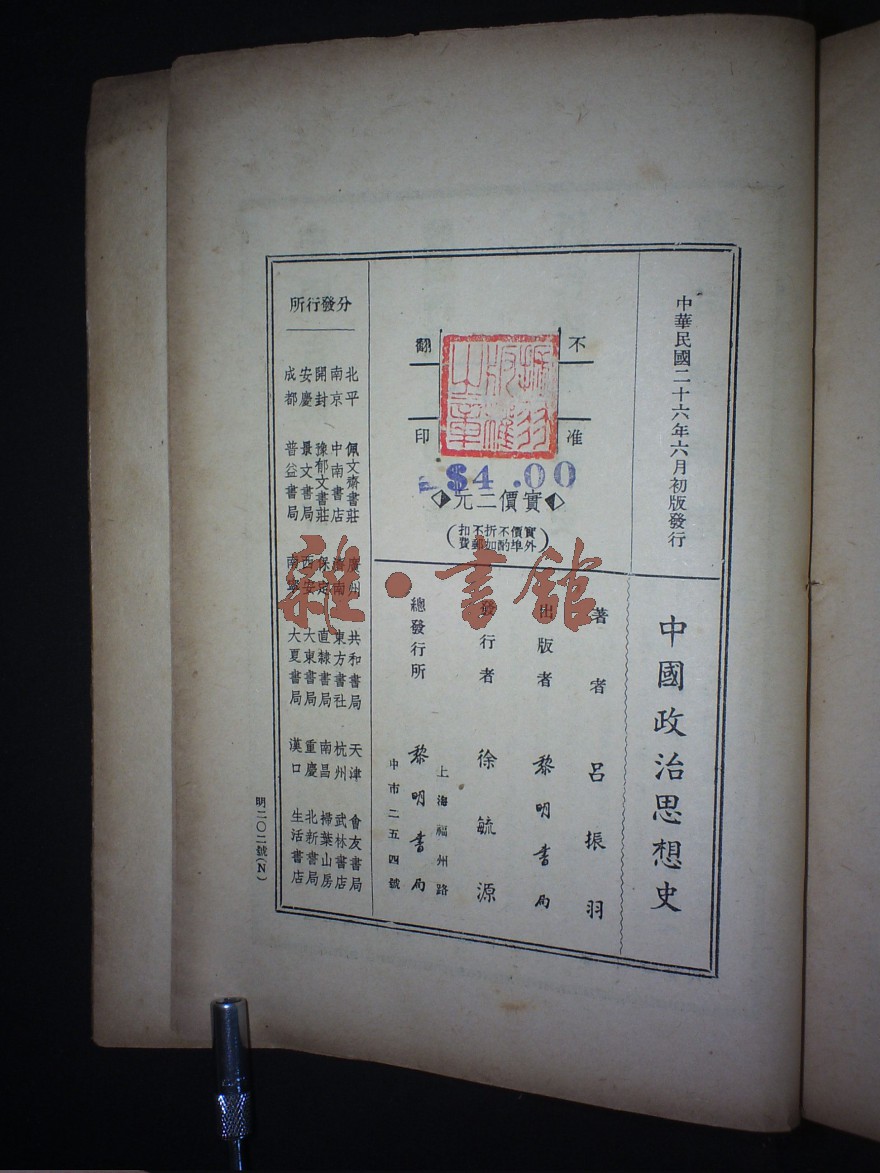 中華民國二十六年六月初版發行
中國政治思想史
不准
翻印
振羽
版權
之章
$4.00
實價二元
(實價不折不扣
外埠酌加郵費)
著者 呂振羽
出版者 黎明書局
發行者 徐毓源
上海福州路
總發行所 黎明書局
中市二五四號
分發行所
北平 佩文齋書莊 廣州 共和書局 天津 會友書局
南京 中南書店 濟南 東方書社 杭州 武林書店
開封 豫郁文書莊 保定 直隸書局 南昌 掃葉山房
安慶 景文書局 西安 大東書局 重慶 北新書局
成都 普益書局 南寧 大夏書局 漢口 生活書店
明二〇二號(N)
雜·書館